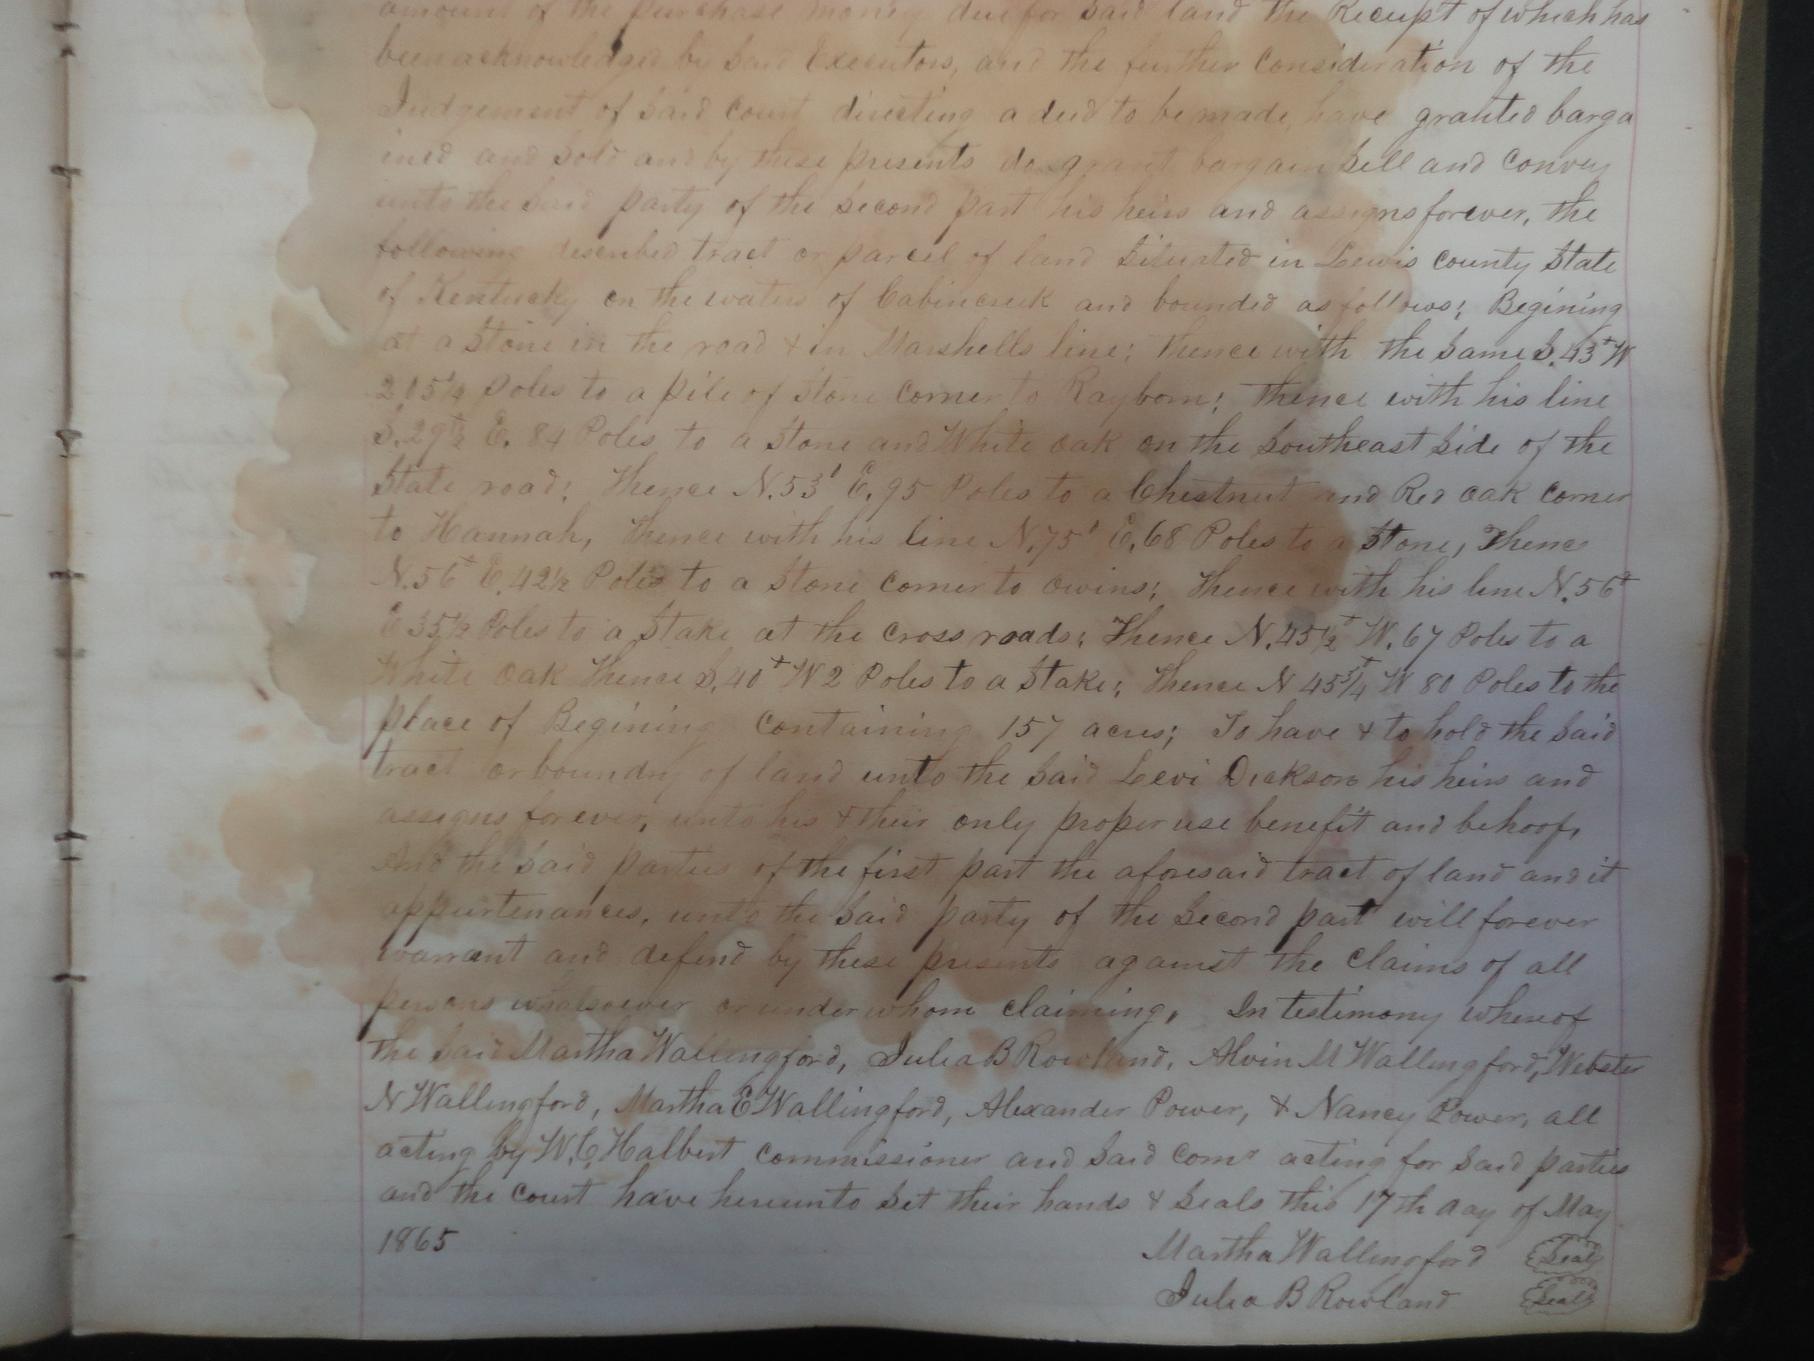 amount of the purchase money due for said land the Receipt of which has
been acknowledged by said Executors, and the further consideration of the
Judgement of said court directing a deed to be made, have granted barga
ined and sold and by these presents do grant bargain sell and convey
unto the said party of the second part his heirs and assigns forever, the
following described tract or parcel of land situated in Lewis county State
of Kentucky on the waters of Cabincreek and bounded as follows; Begining
at a Stone in the road & in Marshells line; thence with the same S. 43° W
205 1/4 poles to a pile of stone corner to Rayborn; thence with his line
S. 29 1/2 E. 84 Poles to a Stone and White oak on the southeast side of the
State road; Thence N. 53° E. 95 Poles to a Chestnut and Red oak corner
to Hannah, Thence with his line N. 75° E. 68 Poles to a Stone, Thence
N. 56° E. 42 1/2 Poles to a Stone corner to Owins; Thence with his line N. 56°
E 35 1/2 Poles to a Stake at the cross roads; Thence N. 45 1/2° W. 67 Poles to a
White oak Thence S. 40° W 2 Poles to a Stake; Thence N 45 3/4° W 80 Poles to the
place of Begining containing 157 acres; To have & to hold the said
tract or boundry of land unto the said Levi Dickson his heirs and
assigns forever, unto his & their only proper use benefit and behoof,
And the said parties of the first part the aforesaid tract of land and it
appurtenances, unto the said party of the second part will forever
warrant and defend by these presents against the claims of all
persons whatsoever or under whom claiming, In testimony whereof
the said Martha Wallingford, Julia B Rowland, Alvin M Wallingford, Webster
N Wallingford, Martha E Wallingford, Alexander Power, & Nancy Power, all
acting by W. C. Halbert commissioner and said comr acting for said parties
and the court have hereunto set their hands & seals this 17th day of May
1865 Martha Wallingford Seal
Julia B Rowland Seal